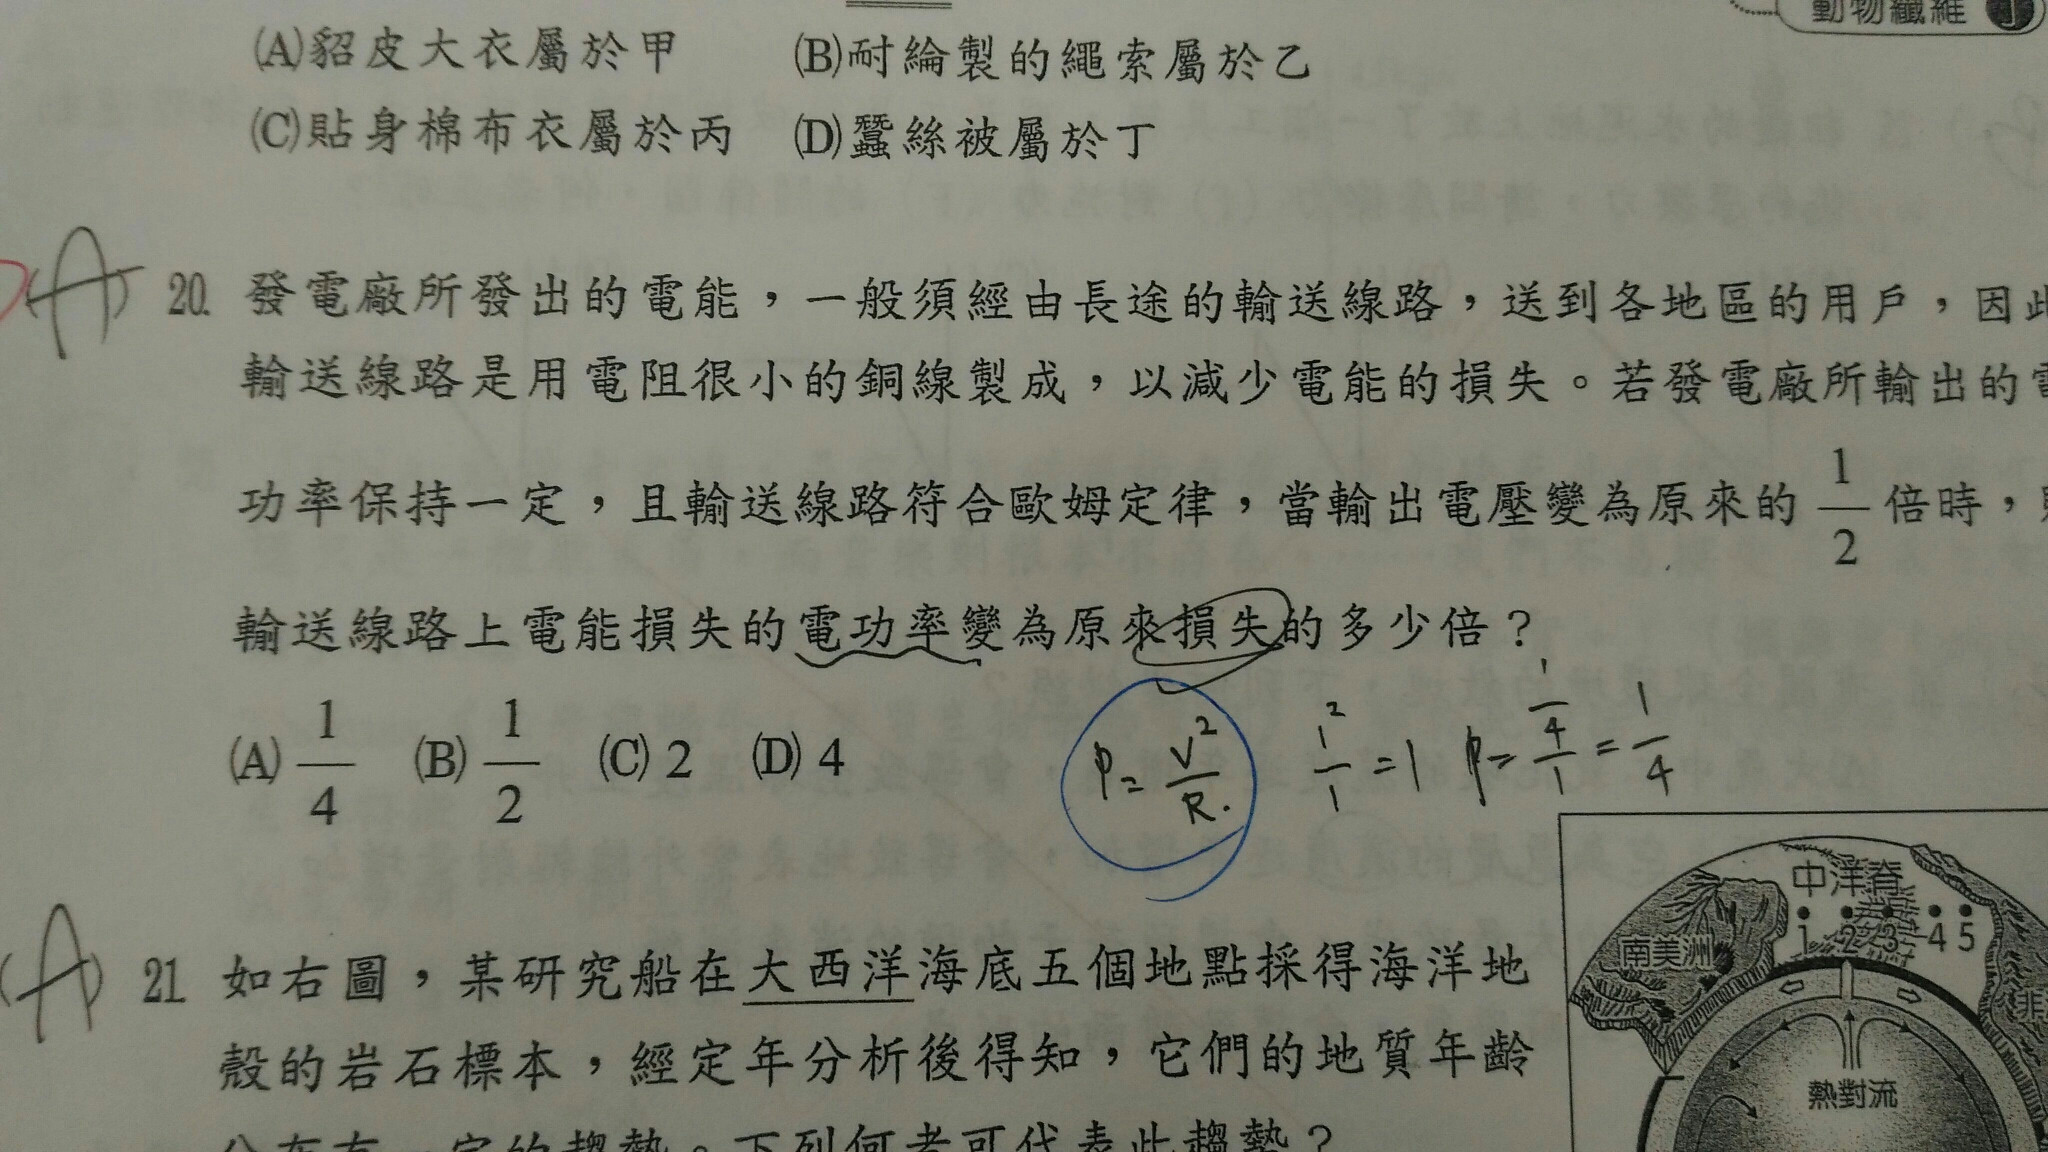 動物纖維
(A)貂皮大衣屬於甲 (B)耐綸製的繩索屬於乙
(C)貼身棉布衣屬於丙 (D)蠶絲被屬於丁
(A) 20. 發電廠所發出的電能，一般須經由長途的輸送線路，送到各地區的用戶，因此
輸送線路是用電阻很小的銅線製成，以減少電能的損失。若發電廠所輸出的電
功率保持一定，且輸送線路符合歐姆定律，當輸出電壓變為原來的 1/2 倍時，則
輸送線路上電能損失的電功率變為原來損失的多少倍？
(A) 1/4 (B) 1/2 (C) 2 (D) 4
P = V²/R. 1²/1 = 1 P = 1/4/1 = 1/4
(A) 21 如右圖，某研究船在大西洋海底五個地點採得海洋地
殼的岩石標本，經定年分析後得知，它們的地質年齡
分布有一定的趨勢。下列何者可代表此趨勢？
中洋脊
1 2 3 4 5
南美洲
非
熱對流